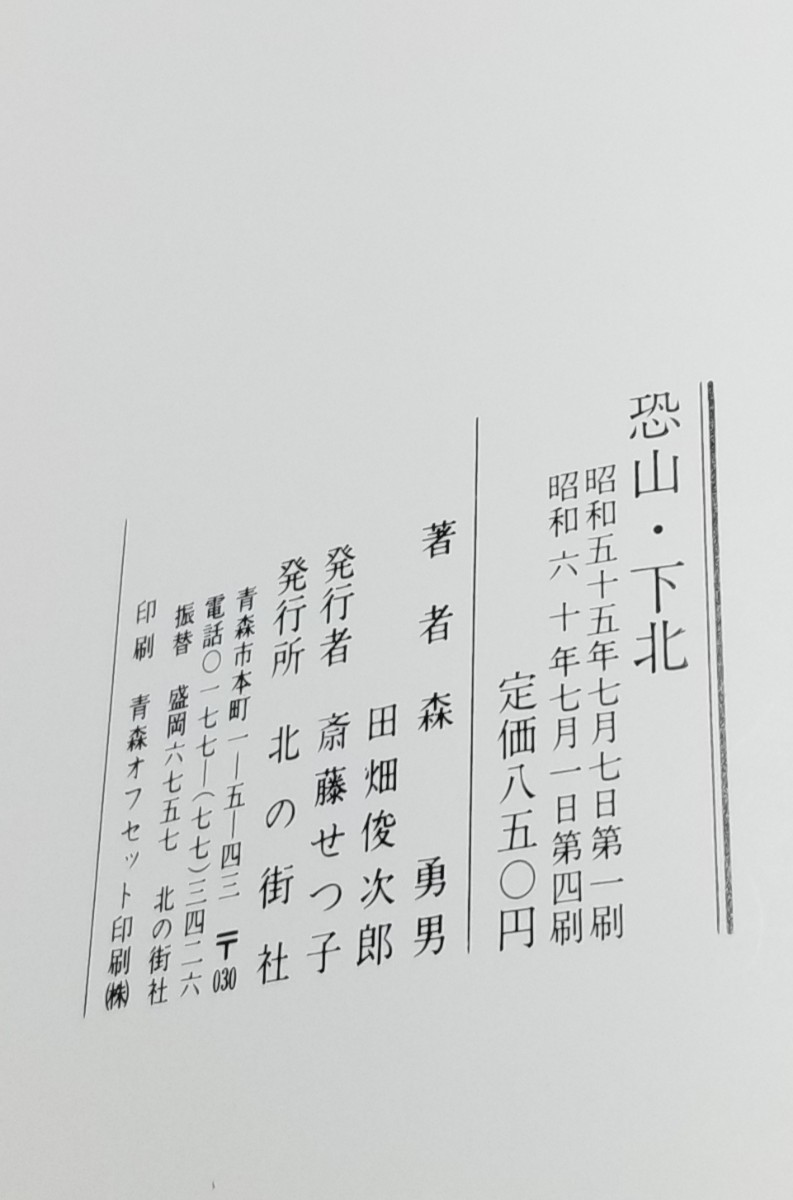 恐山・下北
昭和五十五年七月七日第一刷
昭和六十年七月一日第四刷
定価八五〇円
著者 森 勇男
田畑俊次郎
発行者 斎藤せつ子
発行所 北の街社
青森市本町一―五―四三 〒030
電話〇一七七―(七七)三四二六
振替 盛岡六七五七 北の街社
印刷 青森オフセット印刷㈱